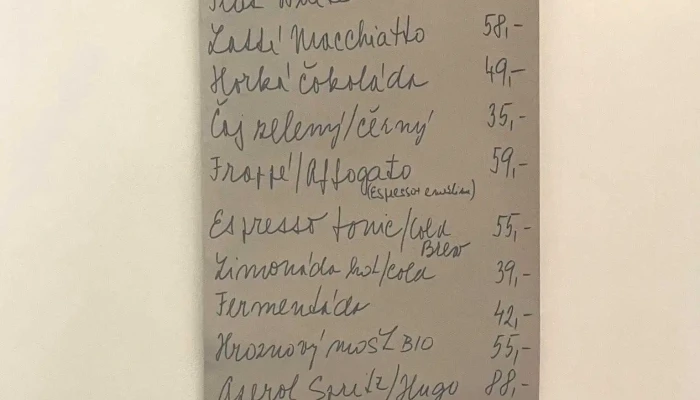 Flat White
Latté Macchiatto 58,-
Horká čokoláda 49,-
Čaj zelený/černý 35,-
Frappé/Affogato 59,-
(Espesso+ zmrzlina)
Espresso tonic/Cold 55,-
Brew
Limonáda hot/cold 39,-
Fermentáda 42,-
Hroznový mošt BIO 55,-
Aperol Spritz/Hugo 88,-